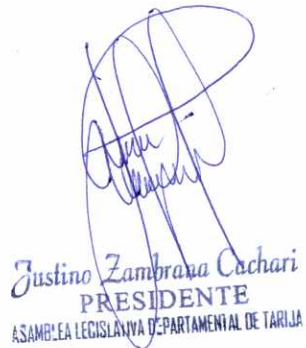 Justino Zambrana Cachari
PRESIDENTE
ASAMBLEA LEGISLATIVA DEPARTAMENTAL DE TARIJA